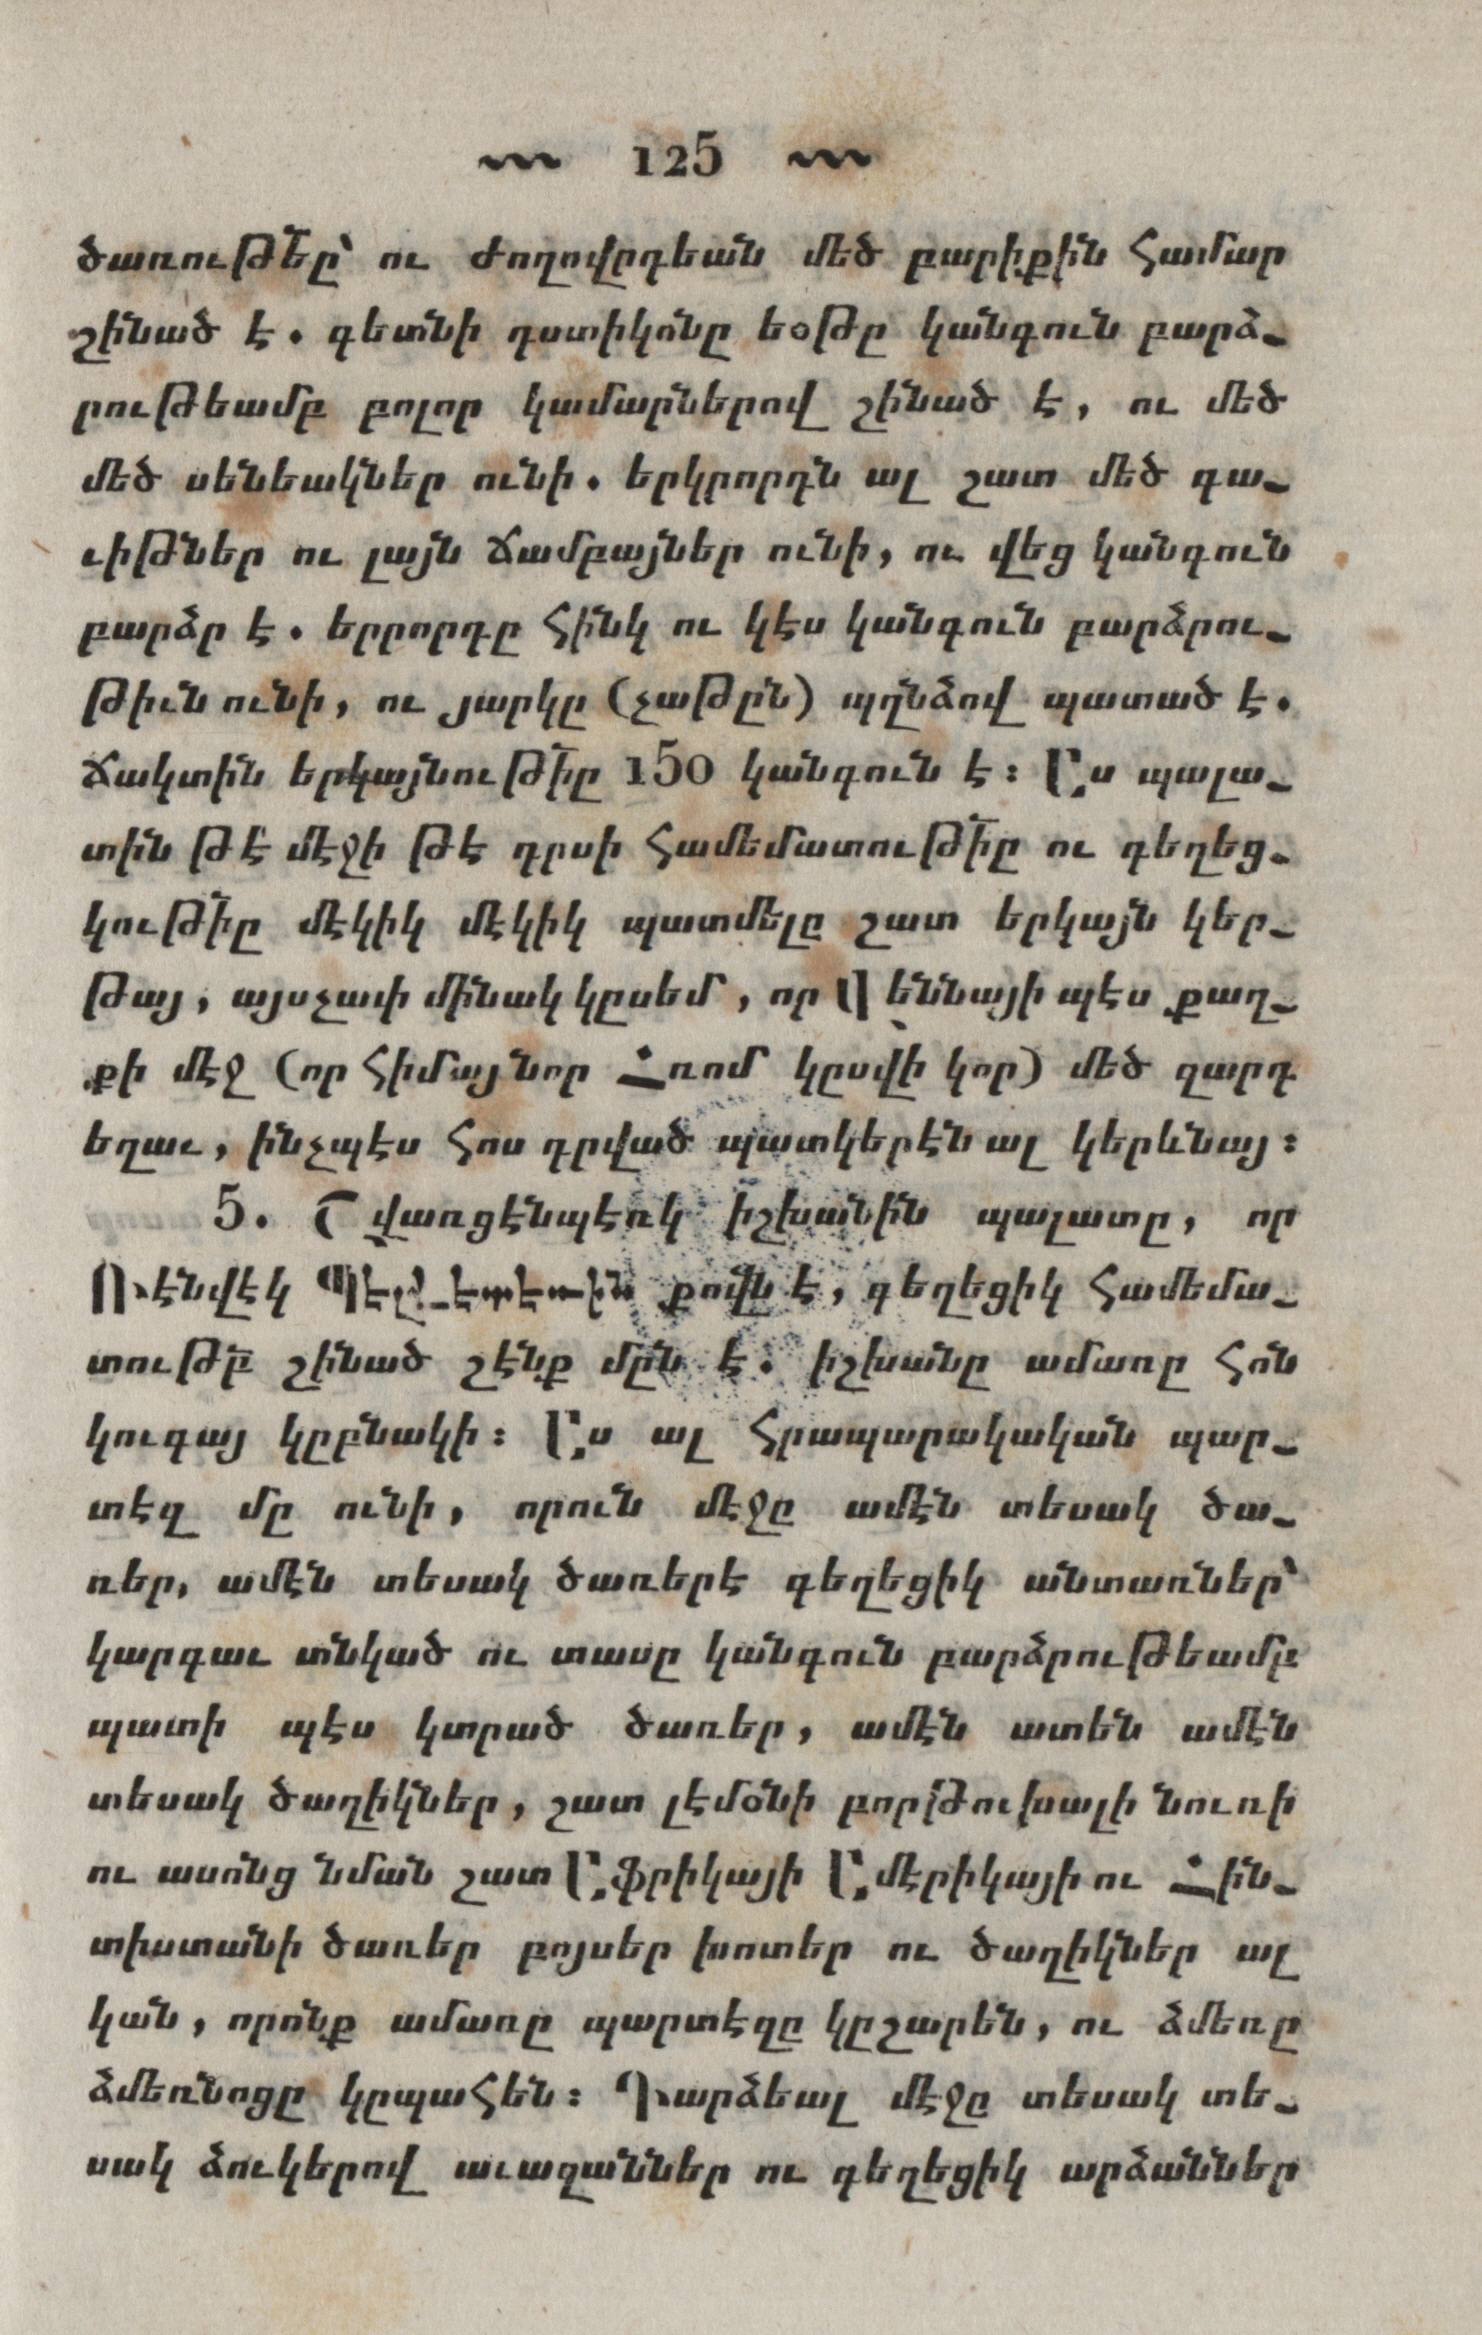 125
ծառութե՟ը՝ ու ժողովըրդեան մեծ բարիքին համար
շինած է. գետնի դստիկոնը եօթը կանգուն բարձ-
րութեամբ բոլոր կամարներով շինած է, ու մեծ
մեծ սենեակներ ունի. երկրորդն ալ շատ մեծ գա-
ւիթներ ու լայն ճամբայներ ունի, ու վեց կանգուն
բարձր է. երրորդը հինկ ու կէս կանգուն բարձրու-
թիւն ունի, ու յարկը (չաթըն) պղնձով պատած է.
ճակտին երկայնութի՟ը 150 կանգուն է։ Աս պալա-
տին թէ մէջի թէ դրսի համեմատութի՟ը ու գեղեց-
կութի՟ը մէկիկ մէկիկ պատմելը շատ երկայն կեր-
թայ, այսչափ մինակ կըսեմ, որ Վեննայի պէս քաղ-
քի մէջ (որ հիմայ նոր Հռոմ կըսվի կոր) մեծ զարդ
եղաւ, ինչպէս հոս դրված պատկերէն ալ կերևնայ։
5. Շվառցէնպէռկ իշխանին պալատը, որ
Ռէնվէկ Պէլվէտէռէին քովն է, գեղեցիկ համեմա-
տութբ՟ շինած շէնք մըն է. իշխանը ամառը հոն
կուգայ կըբնակի։ Աս ալ հրապարակական պար-
տէզ մը ունի, որուն մէջը ամէն տեսակ ծա-
ռեր, ամէն տեսակ ծառերէ գեղեցիկ անտառներ՝
կարգաւ տնկած ու տասը կանգուն բարձրութեամբ
պատի պէս կտրած ծառեր, ամէն ատեն ամէն
տեսակ ծաղիկներ, շատ լէմօնի բորթուխալի նուռի
ու ասոնց նման շատ Աֆրիկայի Ամէրիկայի ու Հին-
տիստանի ծառեր բոյսեր խոտեր ու ծաղիկներ ալ
կան, որոնք ամառը պարտէզը կըշարեն, ու ձմեռը
ձմեռնոցը կըպահեն։ Դարձեալ մէջը տեսակ տե-
սակ ձուկերով աւազաններ ու գեղեցիկ արձաններ